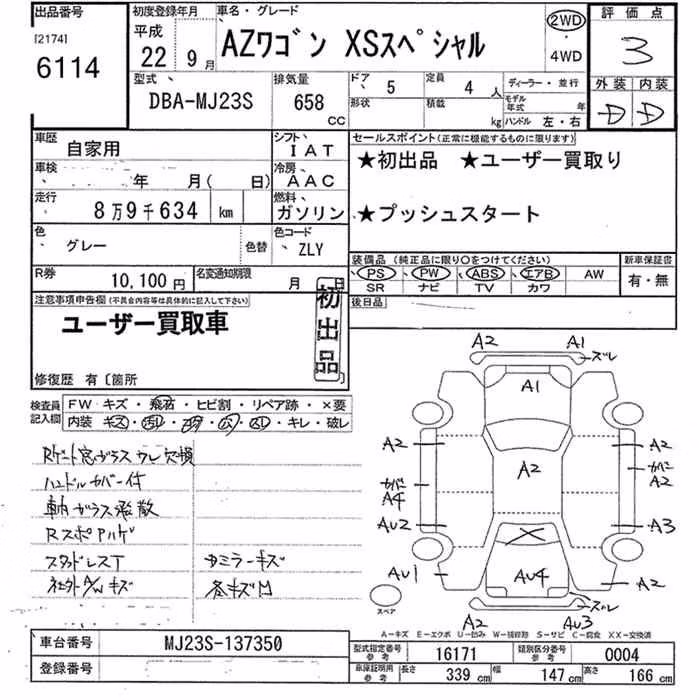 出品番号
[2174]
6114
初度登録年月
平成
22 9月
車名・グレード
AZワゴン XSスペシャル
2WD
・
4WD
評価点
3
外装 内装
D D
型式
DBA-MJ23S
排気量
658
CC
ドア 5
定員 4 人
形状
積載 kg
ディーラー・並行
モデル年式 年
ハンドル 左・右
車歴 自家用
シフト IAT
車検 年 月( 日)
冷房 AAC
走行 8万9千634 km
燃料 ガソリン
色 グレー
色替
色コード ZLY
R券 10,100円
名変通知期限 月 日
セールスポイント(正常に機能するものに限ります)
★初出品 ★ユーザー買取り
★プッシュスタート
装備品 (純正品に限り○をつけてください)
PS PW ABS エアB AW
SR ナビ TV カワ
新車保証書
有・無
後日品
注意事項申告欄(不具合内容等は具体的に記入して下さい)
ユーザー買取車
初出品
修復歴 有〔箇所
検査員記入欄
FW キズ・飛石・ヒビ割・リペア跡・×要
内装 キズ・汚レ・コゲ・穴・スレ・キレ・破レ
Rゲート窓ガラスワレ欠損
ハンドルカバー付
車内ガラス飛散
RスポPハゲ
スタッドレスT
社外A/Wキズ
カミラーキズ
各キズ凹
A2 A1
ズレ
A1
A2
A2
カバー
A4
カバー
A2
A2
AU2
A3
AU1
AU4
A2
ズレ
スペア
A2 AU3
A－キズ E－エクボ U－凹み W－補修跡 S－サビ C－腐食 XX－交換済
車台番号 MJ23S-137350
登録番号
型式指定番号 参考 16171
類別区分番号 参考 0004
車庫証明用 参考 長さ 339 cm 幅 147 cm 高さ 166 cm